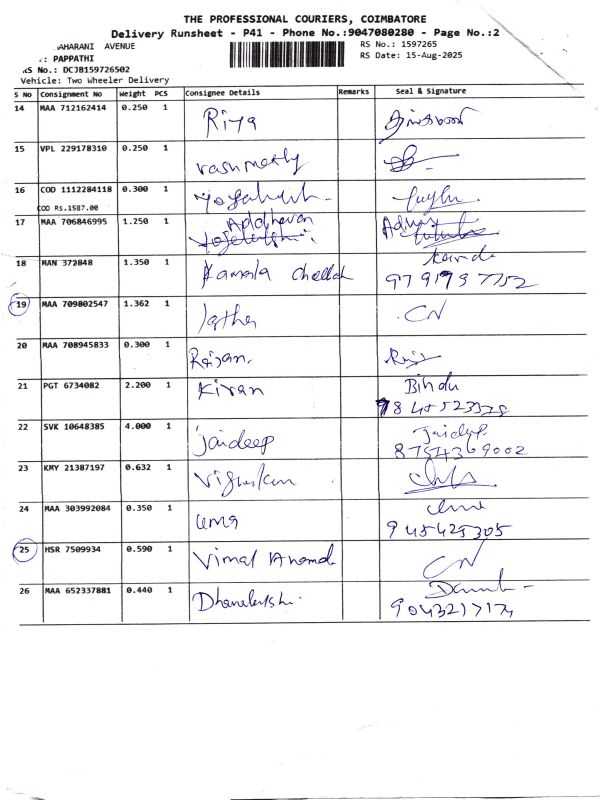 THE PROFESSIONAL COURIERS, COIMBATORE
Delivery Runsheet - P41 - Phone No.:9047080280 - Page No.:2
AHARANI AVENUE
RS No.: 1597265
: PAPPATHI
RS Date: 15-Aug-2025
RS No.: DCJB159726502
Vehicle: Two Wheeler Delivery
S No Consignment No Weight PCS Consignee Details Remarks Seal & Signature
14 MAA 712162414 0.250 1 Riya
15 VPL 229178310 0.250 1
16 COD 1112284118 0.300 1
COD Rs.1587.00
17 MAA 706846995 1.250 1
18 MAN 372848 1.350 1 Kamala
9791797752
19 MAA 709802547 1.362 1 CN
20 MAA 708945833 0.300 1 Rajan.
21 PGT 6734082 2.200 1 Kiran Bindu
22 SVK 10648385 4.000 1 jaideep Jaideep
8754369002
23 KMY 21387197 0.632 1
24 MAA 303992084 0.350 1 uma
945425305
25 HSR 7509934 0.590 1 Vimal Anand CN
26 MAA 652337881 0.440 1